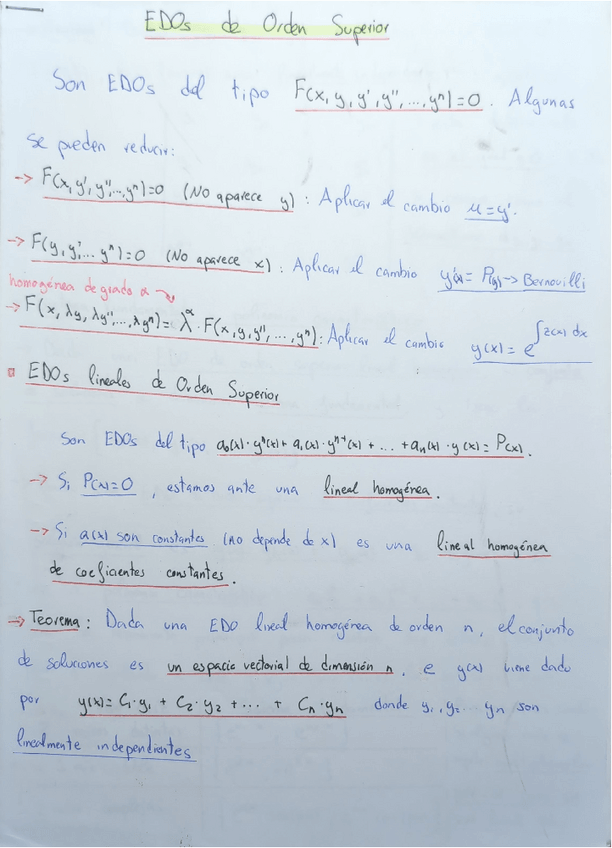 EDOs de Orden Superior
Son EDOs del tipo F(x, y, y', y'', ..., yⁿ)=0. Algunas
se pueden reducir:
→ F(x, y', y'', ..., yⁿ)=0 (No aparece y): Aplicar el cambio u=y'.
→ F(y, y', ... yⁿ)=0 (No aparece x): Aplicar el cambio y'(x)= P(y) → Bernouilli
homogénea de grado α
→ F(x, λy, λy'', ..., λyⁿ)= λ^α · F(x, y, y'', ..., yⁿ): Aplicar el cambio y(x) = e^∫z(x) dx
EDOs lineales de Orden Superior
Son EDOs del tipo a₀(x)·yⁿ(x)+ a₁(x)·yⁿ⁻¹(x) + ... + aₙ(x)·y(x)= P(x).
→ Si P(x)=0, estamos ante una lineal homogénea.
→ Si a(x) son constantes (no depende de x) es una lineal homogénea
de coeficientes constantes.
→ Teorema: Dada una EDO lineal homogénea de orden n, el conjunto
de soluciones es un espacio vectorial de dimensión n, e y(x) viene dado
por y(x)= C₁·y₁ + C₂·y₂ + ... + Cₙ·yₙ donde y₁, y₂ ... yₙ son
linealmente independientes